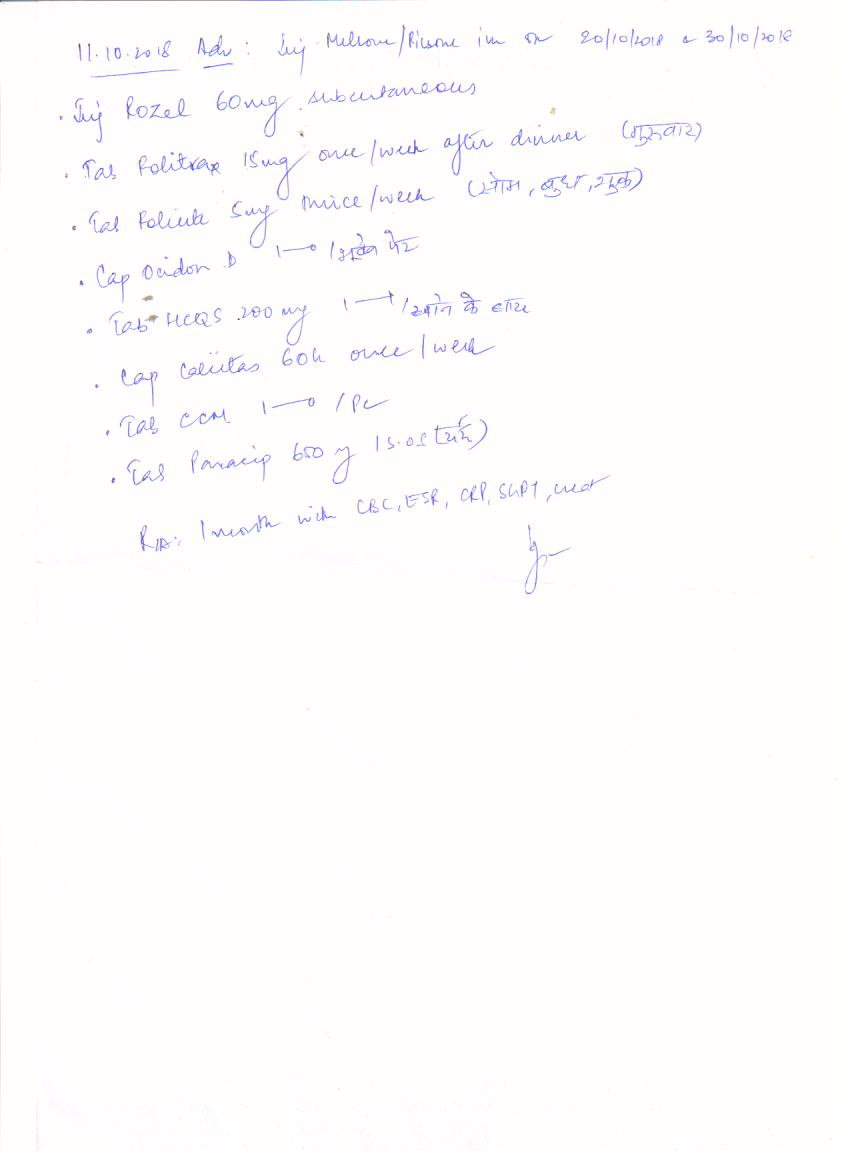 11.10.2018 Adv: Inj on 20/10/2018 & 30/10/2018
• Inj Rozel 60mg subcutaneous
• Tab Folitrax 15mg once/week after dinner (गुरुवार)
• Tab Folicite 5mg thrice/week (सोम, बुध, शुक्र)
• Cap Ocidon D 1—0 / पेट
• Tab HCQS 200mg 1—1 / खाने के साथ
• Cap 60k once/week
• Tab CCM 1—0 / PC
• Tab Paracip 650mg S.O.S (दर्द)
R/A: 1 month with CBC, ESR, CRP, SGPT, creat